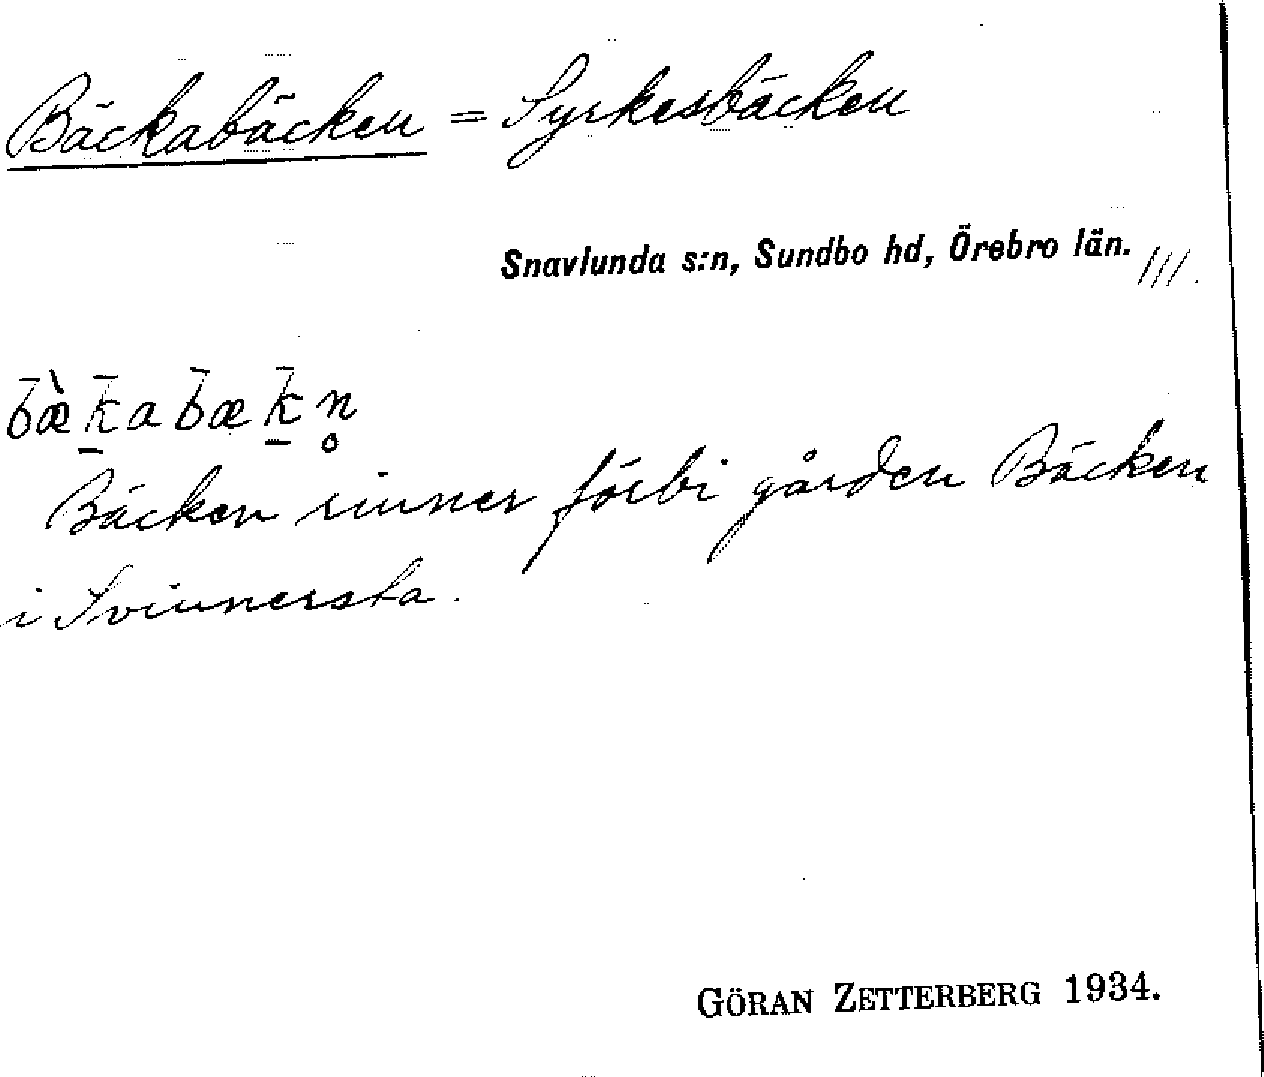 Bäckabäcken = Syrkesbäcken
Snavlunda s:n, Sundbo hd, Örebro län. ///.
bæ̀k̠abæk̠n̥
Bäcken rinner förbi gården Bäcken
i Svinnersta.
GÖRAN ZETTERBERG 1934.